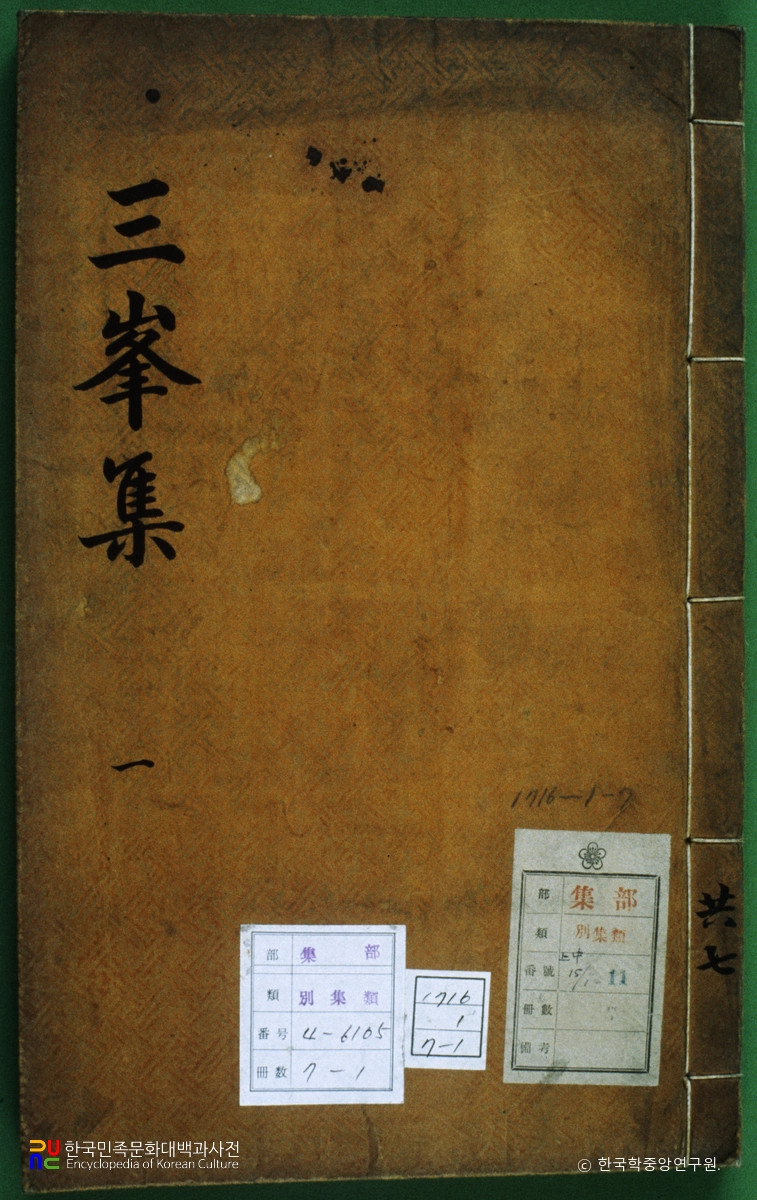 三峯集
一
共七
1716-1-7
部 集部
類 別集類
番號 上中 15/1 11
冊數
備考
部 集 部
類 別集類
番号 4-6105
冊數 7-1
1716
1
7-1
한국민족문화대백과사전
Encyclopedia of Korean Culture
© 한국학중앙연구원.